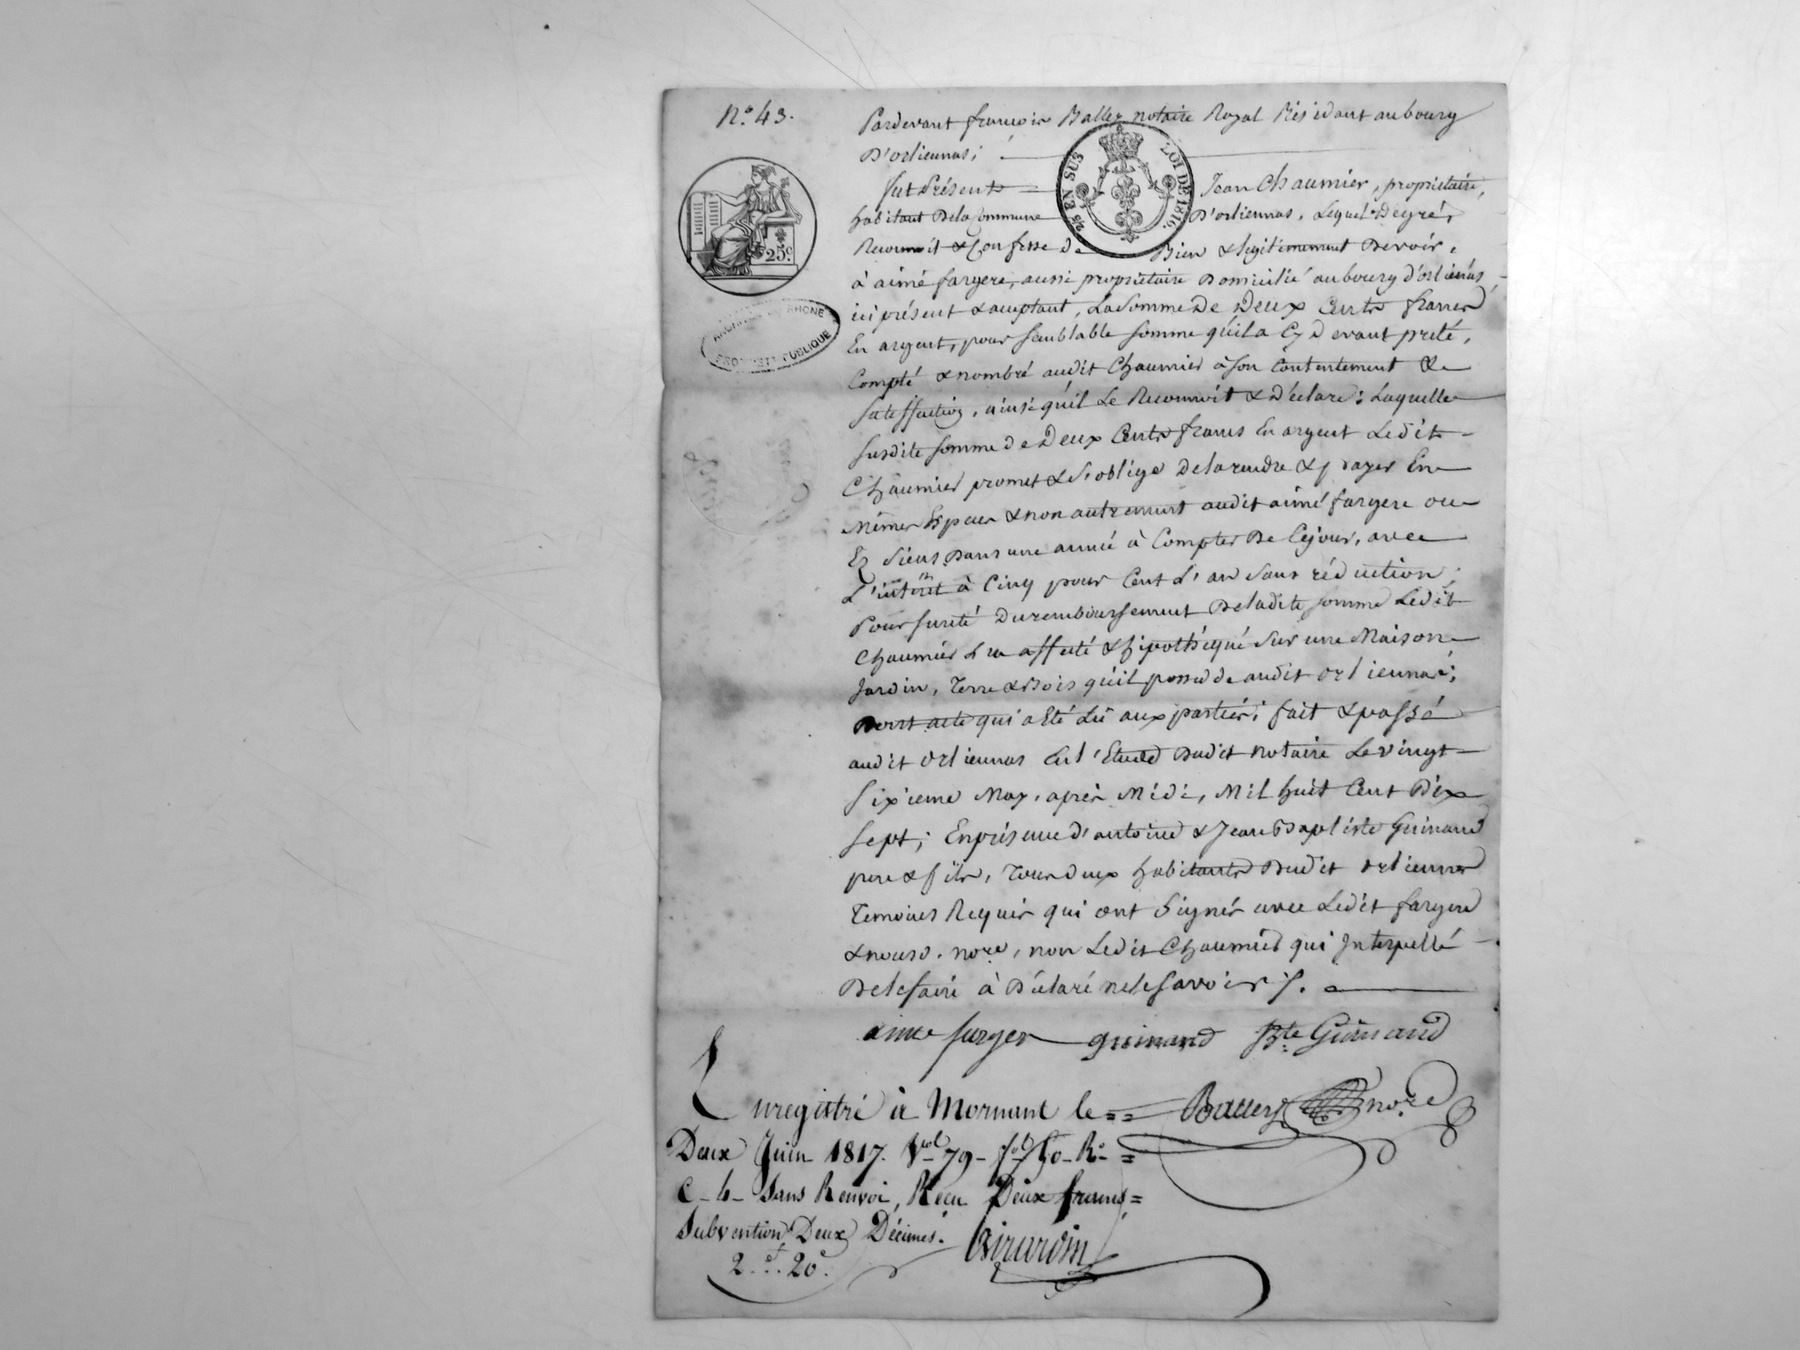 N.o 43.
Pardevant françois Balley notaire Royal Résidant au bourg
D'orliennas;
fut Présent Jean Chaumier, propriétaire,
habitant De la Commune D'orliennas, Lequel De gré,
Reconnoit & Confesse de Bien & legitimement Devoir,
à aimé fargere, aussi propriétaire Domicilié au bourg d'orliennas,
ici présent & acceptant, La Somme De Deux Cents francs
En argent, pour semblable somme qu'il a Cy devant preté,
Compté & nombré audit Chaumier à son Contentement &
satisffaction, ainsi qu'il Le Reconnoit & Déclare; Laquelle
susdite somme de Deux Cents francs En argent Ledit
Chaumier promet & s'oblige De la rendre & payer En
Mêmes Espèces & non autrement audit aimé fargere ou
Es siens Dans une année à Compter De Cejour, avec
L'intérêt à Cinq pour Cent L'an sans réduction;
Pour sureté Du remboursement De ladite somme Ledit
Chaumier L'a affecté & hipothéqué sur une Maison
Jardin, Terre & Bois qu'il possede audit orliennas;
Dont acte qui a Eté Lû aux parties; fait & passé
audit orliennas En l'Etude Dudit notaire Le vingt
sixieme May, après Midi, Mil huit Cent Dix
sept; En présence d'antoine & Jean Baptiste Guinand
pere & fils, Tous deux habitants Dudit orliennas
Temoins Requis qui ont signés avec Ledit fargere
& nousd. nore, non Ledit Chaumier qui Interpellé
De le faire à Déclaré ne le savoir /.
aimé farger guinand Bte Guinand
Enregistré à Mornant le == Balley nore
Deux Juin 1817. Vol 79 - fol 50 - Ro =
C - 6 - Sans Renvoi, Reçu Deux francs =
Subvention Deux Décimes. Girardin
2.f. 20c.
25c
25 EN SUS
LOI DE 1816.
ARCHIVES DU RHONE
PROPRIÉTÉ PUBLIQUE